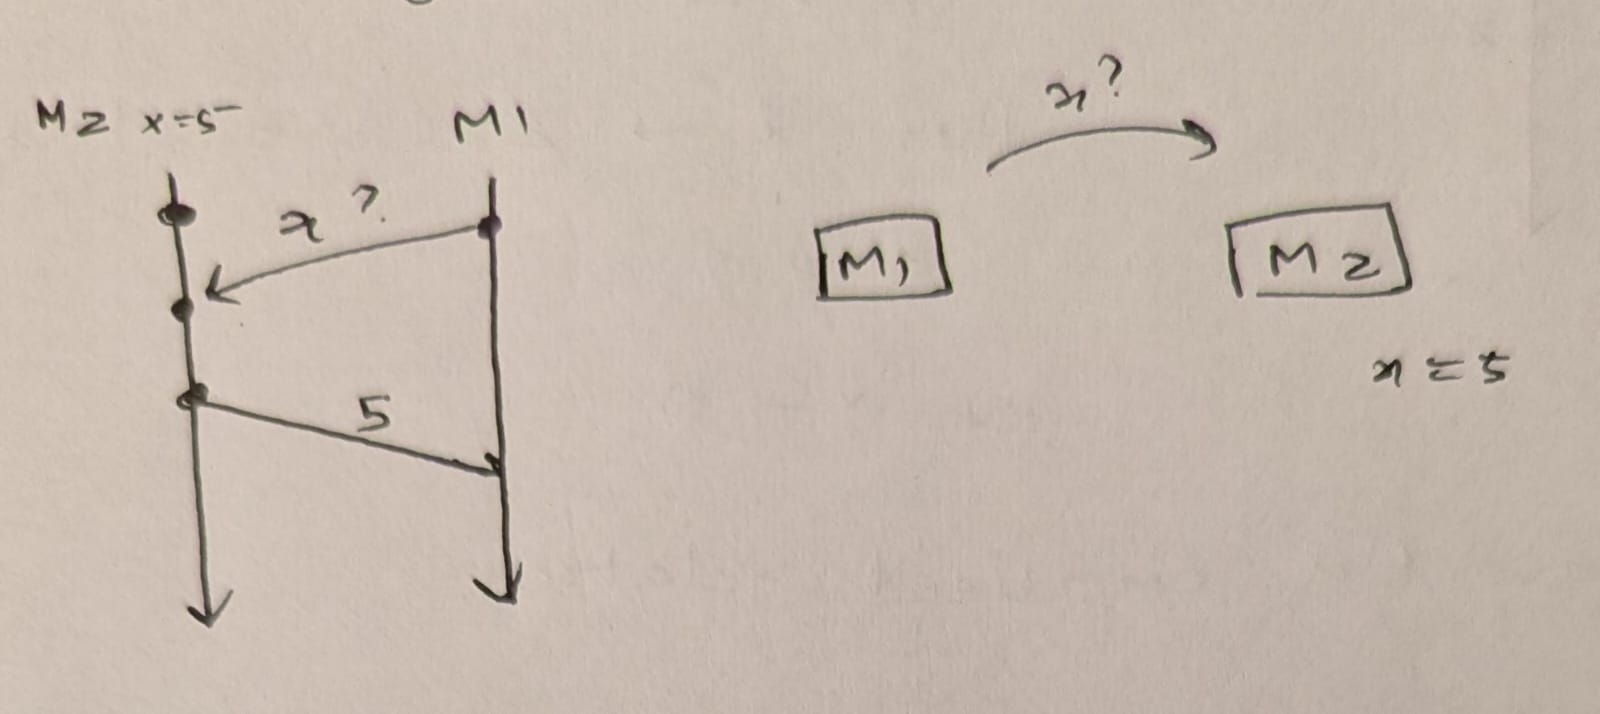 M2 x=5
M1
x?
5
x?
M1
M2
x=5